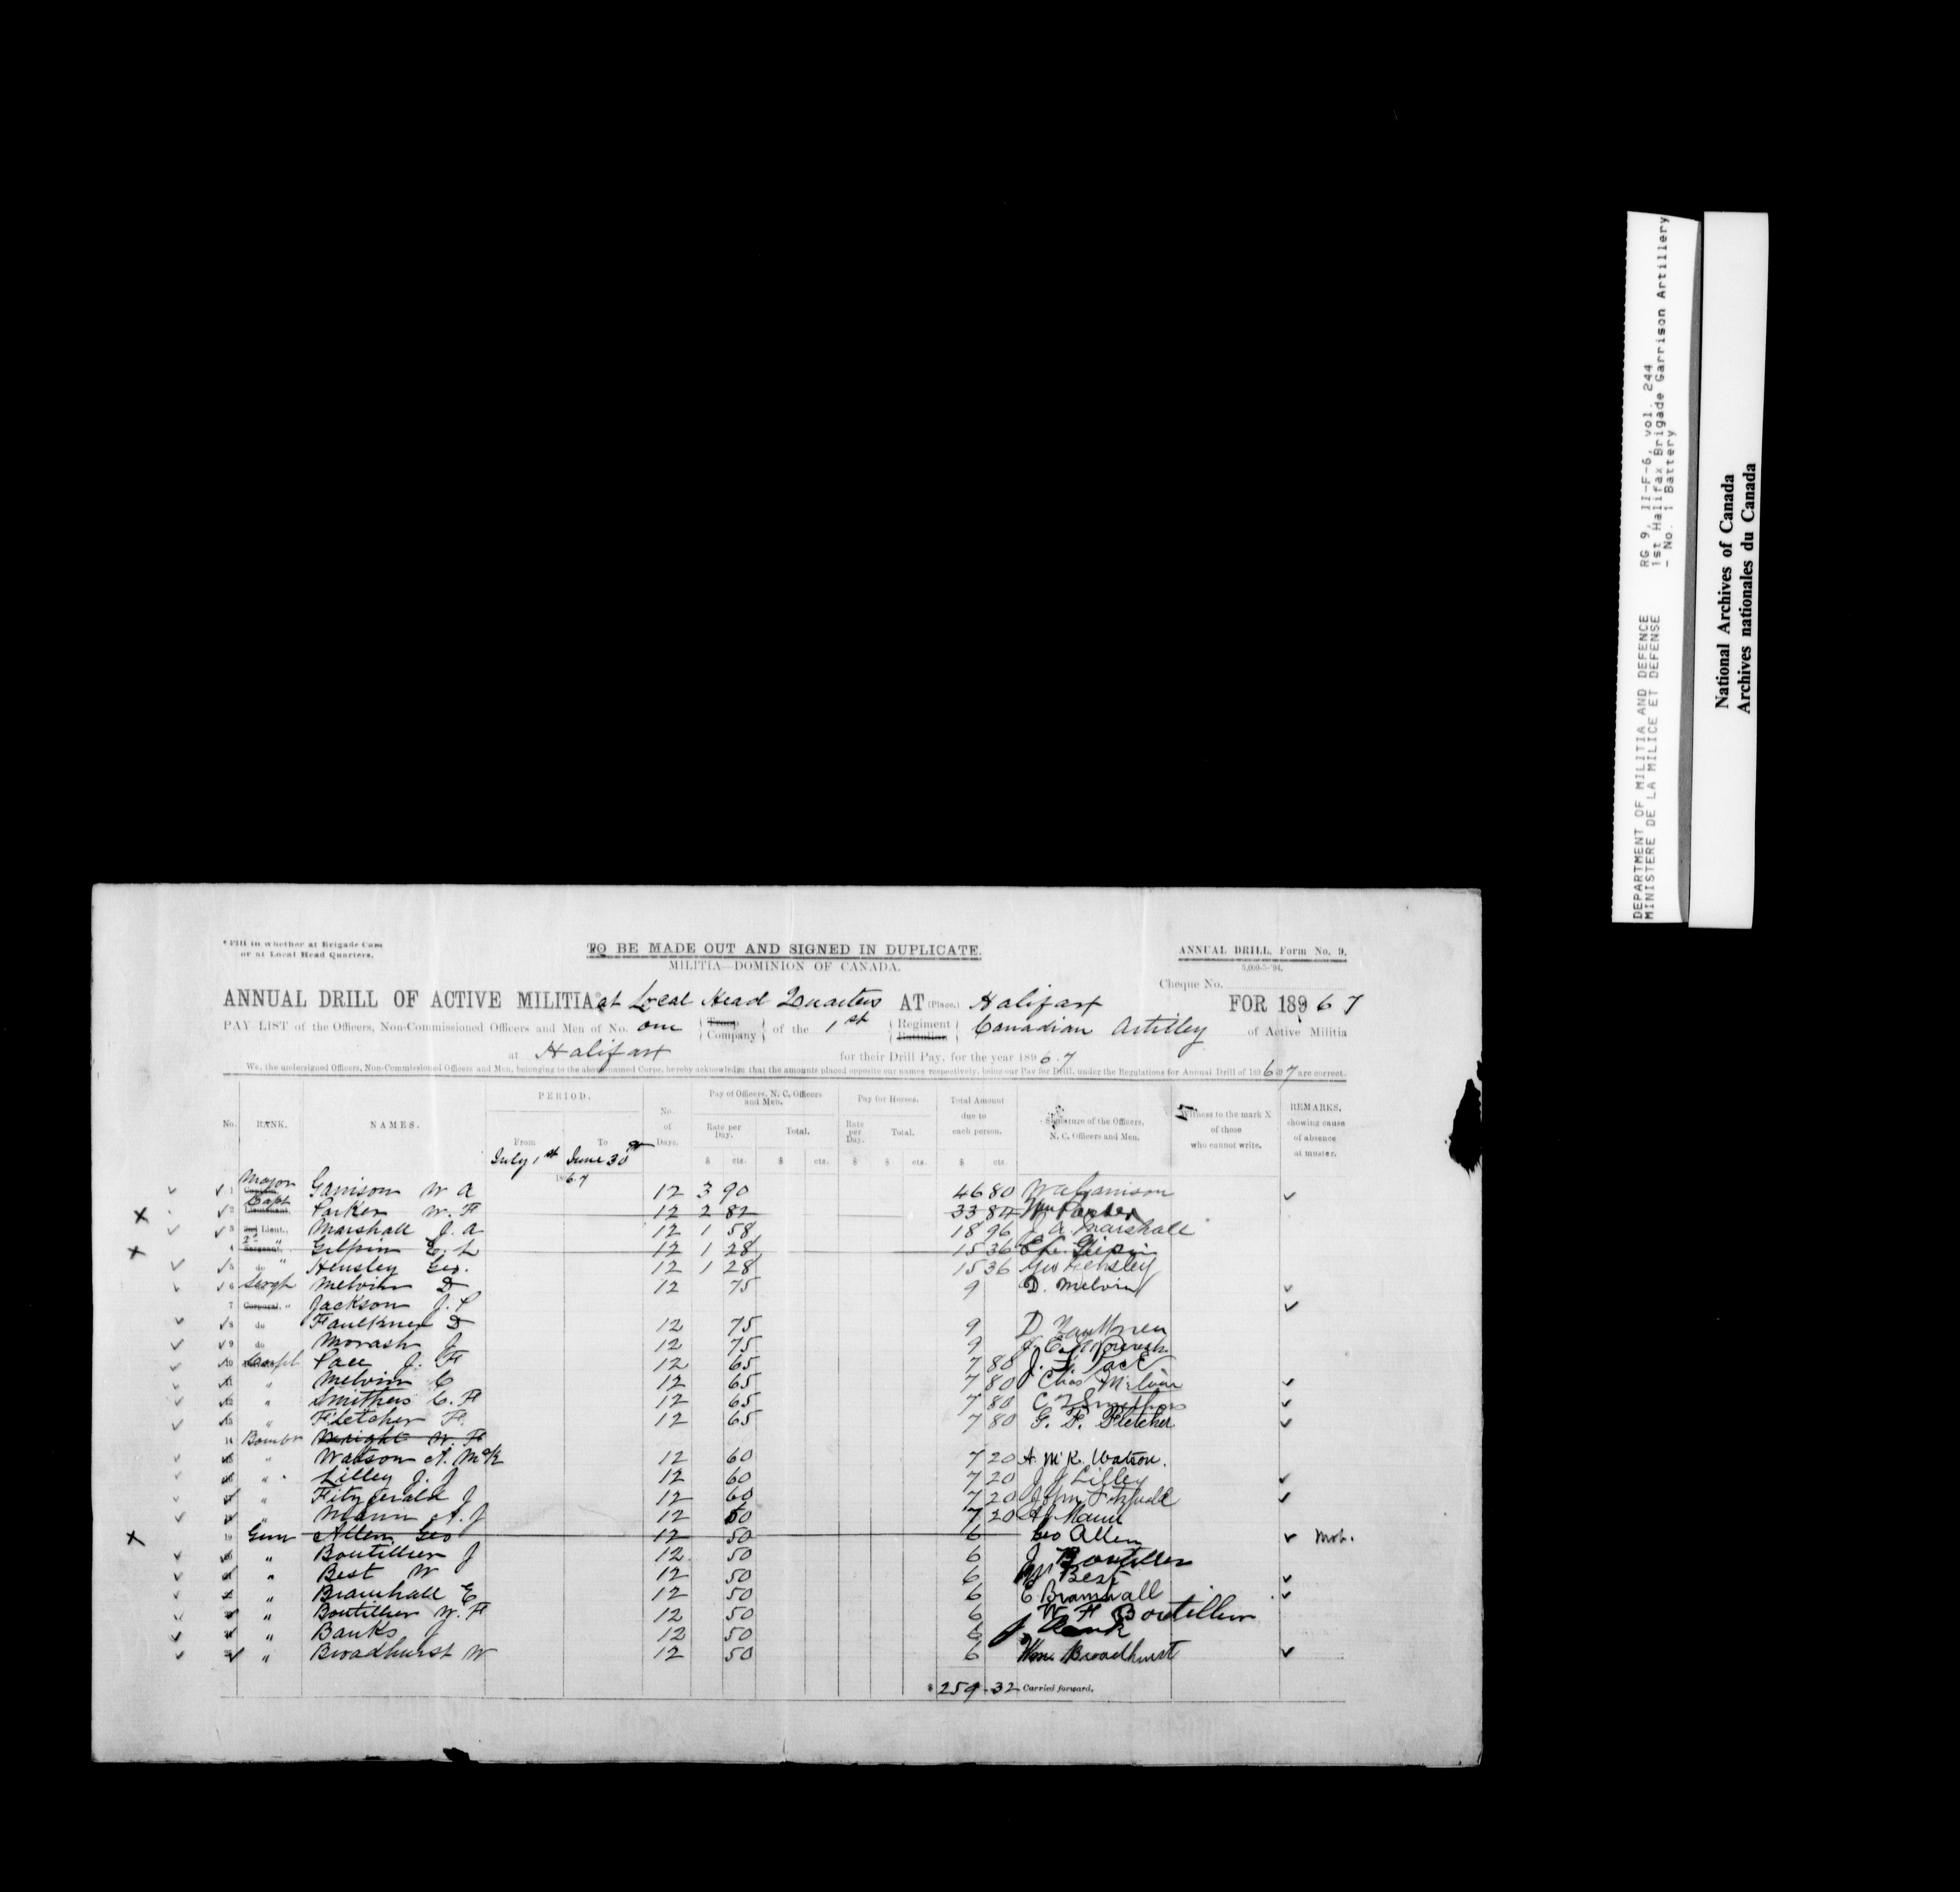 * Fill in whether at Brigade Cam
or at Local Head Quarters.
TO BE MADE OUT AND SIGNED IN DUPLICATE.
MILITIA—DOMINION OF CANADA.
ANNUAL DRILL, Form No. 9.
5,000-5-'94.
Cheque No.
ANNUAL DRILL OF ACTIVE MILITIA* at Local Head Quarters AT (Place.) Halifax FOR 1896 7
PAY LIST of the Officers, Non-Commissioned Officers and Men of No. one Troop Company of the 1st Regiment Battalion Canadian Artilley of Active Militia
at Halifax for their Drill Pay, for the year 1896.7
We, the undersigned Officers, Non-Commissioned Officers and Men, belonging to the above named Corps, hereby acknowledge that the amounts placed opposite our names respectively, being our Pay for Drill, under the Regulations for Annual Drill of 1896 97 are correct.
No. RANK. NAMES. PERIOD. From To No. of Days. Pay of Officers, N. C. Officers and Men. Rate per Day. Total. Pay for Horses. Rate per Day. Total. Total Amount due to each person. Signature of the Officers, N. C. Officers and Men. Witness to the mark X of those who cannot write. REMARKS, showing cause of absence at muster.
July 1st June 30th
1867
$ cts. $ cts. $ $ cts. $ cts.
1 Major Garrison W A 12 3 90 46 80 W A Garrison
2 Capt Lieutenant. Parker W. F 12 2 82 33 84 Wm Parker
3 2nd Lieut., Marshall J. A 12 1 58 18 96 J A Marshall
4 2nd " Sergeant, Gilpin E. L 12 1 28 15 36 Gilpin
5 do " Hensley Geo. 12 1 28 15 36 Geo Hensley
6 Sergt Melvin D 12 75 9 D. Melvin
7 Corporal, " Jackson J. P
8 do Faulkner D 12 75 9 D Faulkner
9 do Morash J 12 75 9 J. E. Morash
10 Corpl Pace J. F 12 65 7 80 J. F. Pace
11 " Melvin C 12 65 7 80 Chas Melvin
12 " Smithers C. F 12 65 7 80 C F Smithers
13 " Fletcher F. 12 65 7 80 G. F. Fletcher
14 Bombr Wright W. F
15 " Watson A. McK 12 60 7 20 A. McK. Watson.
16 " Lilley J. J 12 60 7 20 J J Lilley
17 " Fitzgerald J 12 60 7 20 John Fitzgerald
18 " Mann A. J 12 60 7 20 A J Mann
19 Gunr Allen Geo 12 50 6 Geo Allen
20 " Boutillier J 12 50 6 J Boutillier
21 " Best W 12 50 6 W Best
22 " Bramhall E 12 50 6 E Bramhall
23 " Boutillier W. F 12 50 6 W F Boutillier
24 " Banks J 12 50 6 J. Bank
25 " Broadhurst W 12 50 6 Wm. Broadhurst
$ 259.32 Carried forward.
DEPARTMENT OF MILITIA AND DEFENCE
MINISTERE DE LA MILICE ET DEFENSE
RG 9, II-F-6, vol. 244
1st Halifax Brigade Garrison Artillery
- No. 1 Battery
National Archives of Canada
Archives nationales du Canada